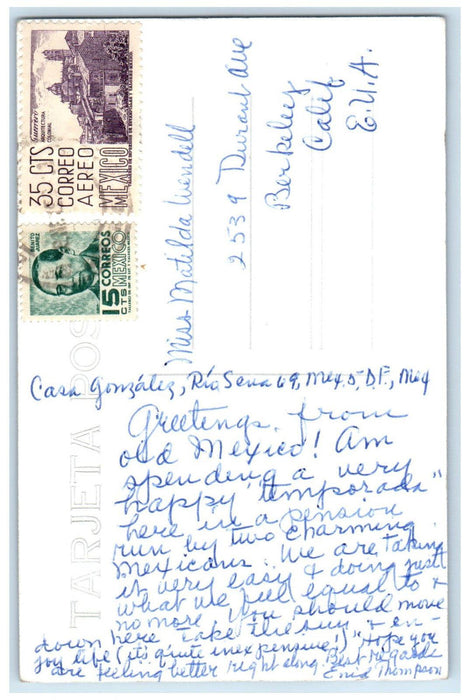 35 CTS
CORREO
AEREO
MEXICO
Guerrero
ARQUITECTURA
COLONIAL
BENITO
JUAREZ
15 CTS
CORREOS
MEXICO
TARJETA POS
Miss Matilda Wendell
2539 Durant Ave
Berkeley
Calif
E.U.A.
Casa González, Río Sena 69, Mex. 5, D.F., Mex
Greetings from
old Mexico! Am
spending a very
happy "temporada"
here in a pension
run by two charming
Mexicans. We are taking
it very easy & doing just
what we feel equal to &
no more. You should move
down here take the sun & en-
joy life (it's quite inexpensive!) Hope you
are feeling better right along. Best regards
Enid Thompson